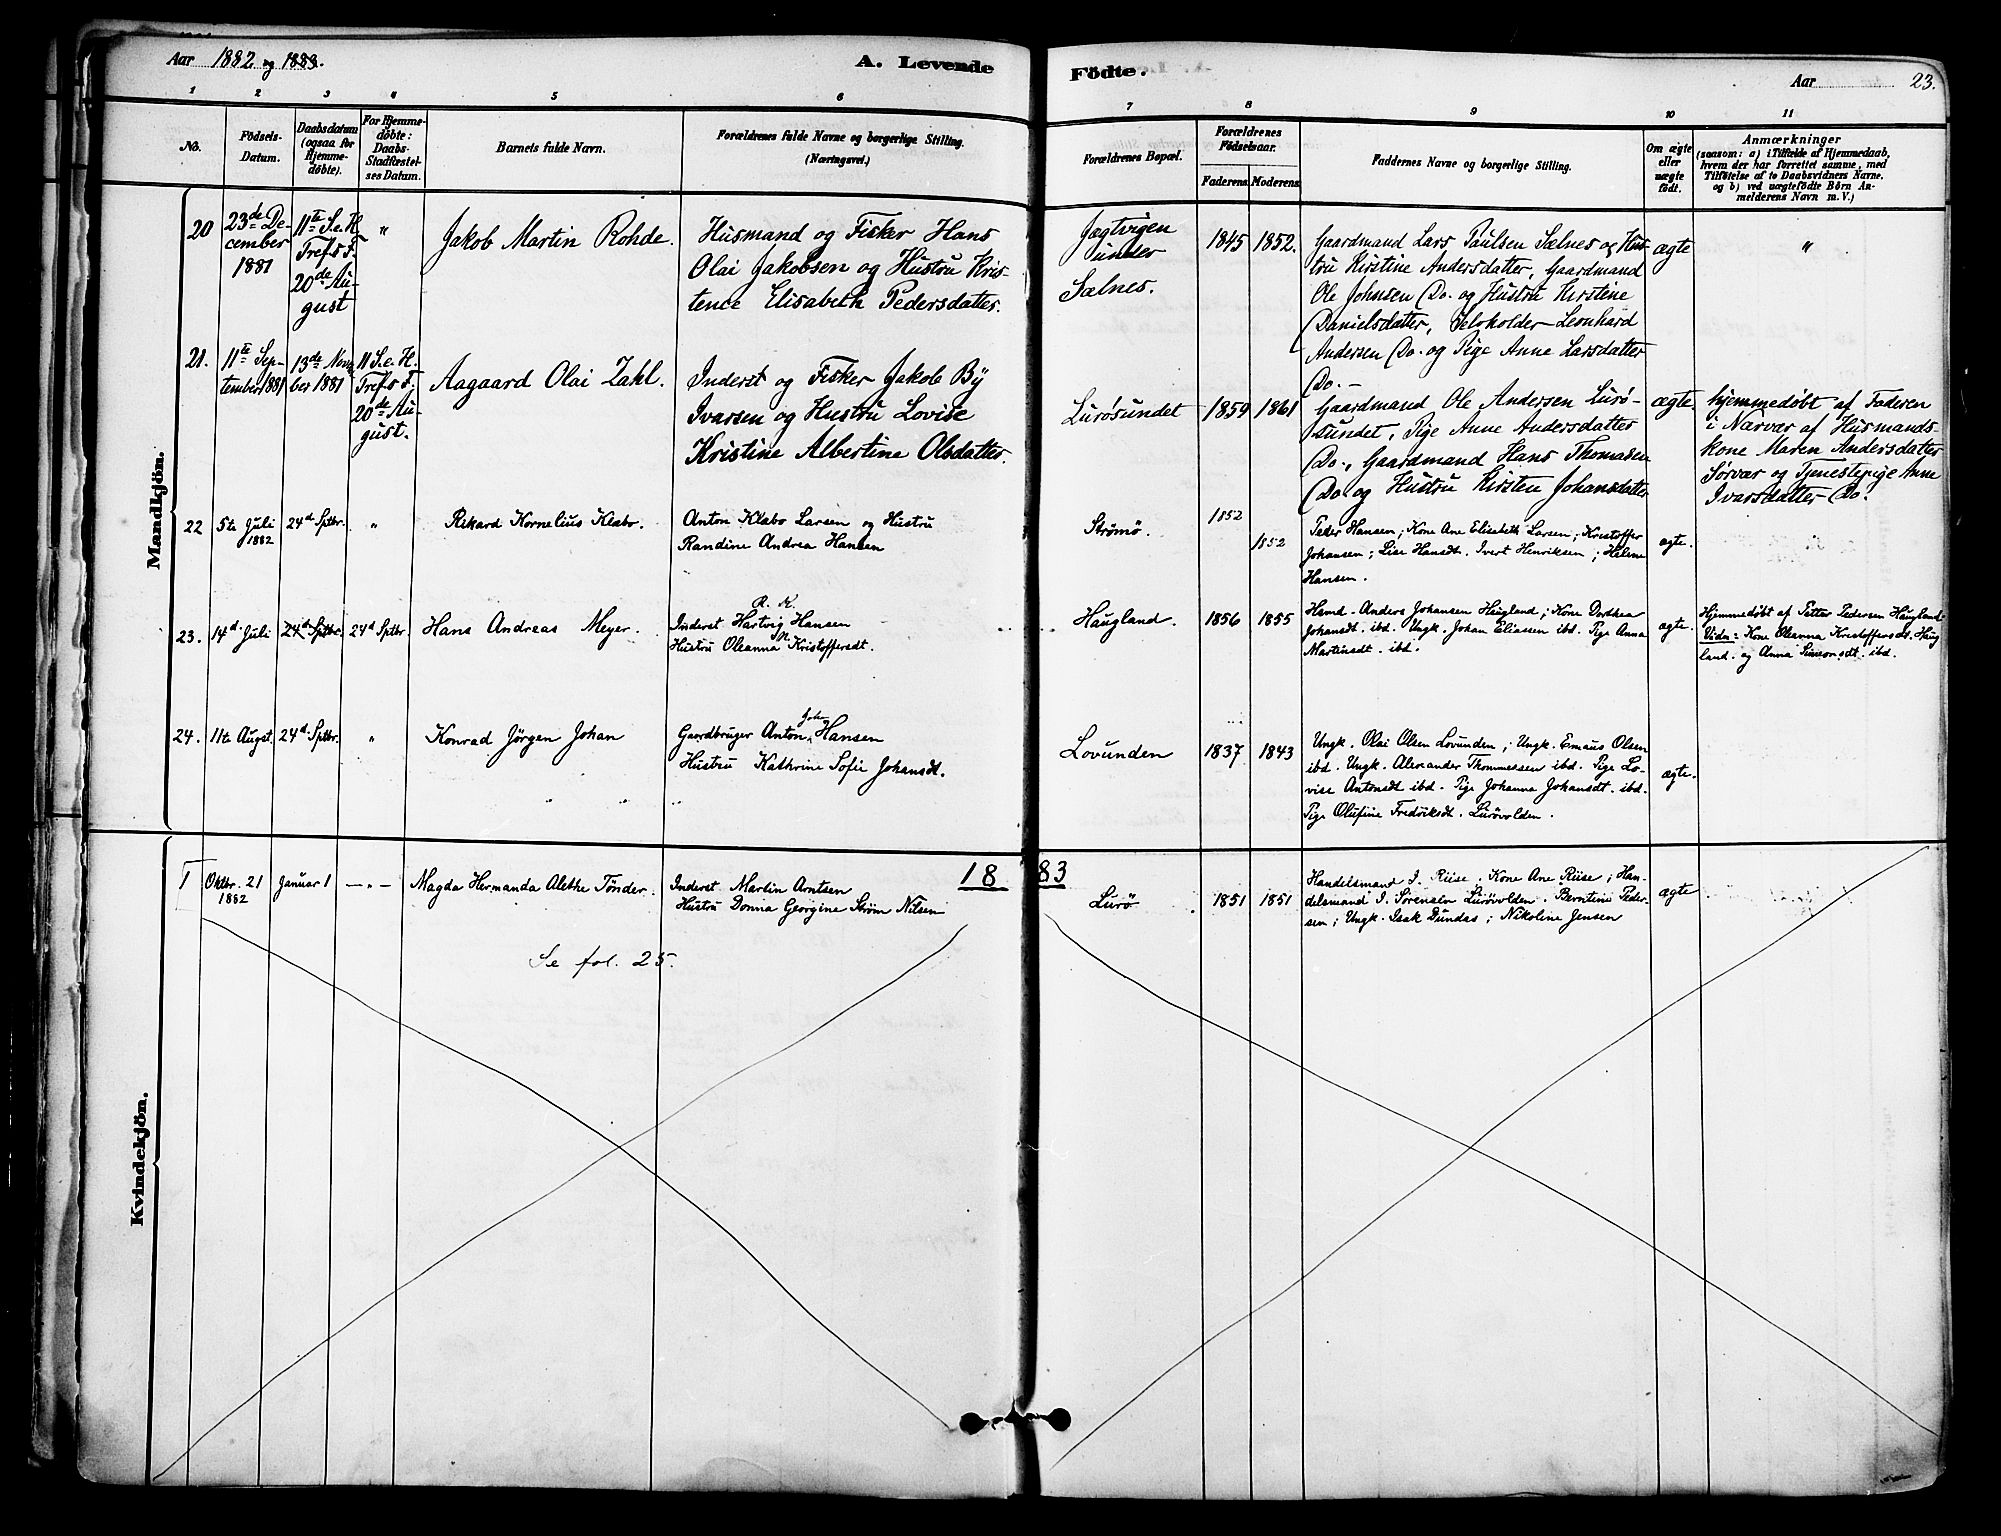 Aar 1882 og 1883.
A. Levende Födte.
Aar 23.
1 2 3 4 5 6 7 8 9 10 11
No.
Födsels-Datum.
Daabsdatum (ogsaa for Hjemmedøbte).
For Hjemmedøbte: Daabs-Stadfæstelses Datum.
Barnets fulde Navn.
Forældrenes fulde Navne og borgerlige Stilling.
(Næringsvei.)
Forældrenes Bopæl.
Forældrenes Födselsaar.
Faderens. Moderens.
Faddernes Navne og borgerlige Stilling.
Om ægte eller uægte født.
Anmærkninger
(saasom: a) i Tilfælde af Hjemmedaab,
hvem der har forrettet samme, med
Tilföielse af to Daabsvidners Navne.
og b) ved uægtefödte Börn An-
melderens Navn m. V.)
Mandkjön.
20
23de De-
cember
1881
11te S. e. H.
Tref.s F.
20de Au-
gust
"
Jakob Martin Rohde.
Husmand og Fisker Hans
Olai Jakobsen og Hustru Kris-
tence Elisabeth Pedersdatter.
Jægtvigen
under
Sælnes.
1845 1852.
Gaardmand Lars Paulsen Sælnes og Hus-
tru Kirstine Andersdatter, Gaardmand
Ole Johnsen Do. og Hustru Kirstine
Danielsdatter, Selvholder Leonhard
Andersen Do. og Pige Anne Larsdatter
Do. -
ægte
"
21.
11te Sep-
tember 1881
13de Novem
ber 1881
11 S. e. H.
Tref.s F.
20de Au-
gust.
Aagaard Olai Zahl.
Inderst og Fisker Jakob By
Ivarsen og Hustru Lovise
Kristine Albertine Olsdatter.
Lurøsundet
1859 1861
Gaardmand Ole Andersen Lurø-
sundet, Pige Anne Andersdatter
Do., Gaardmand Hans Thomasen
Do. og Hustru Kirsten Johansdatter
ægte.
hjemmedøbt af Faderen
i Nærvær af Husmands-
kone Maren Andersdatter
Sørvær og Tjenestepige Anne
Ivarsdatter Do.
22
5te Juli
1882
24d Sptbr.
"
Rikard Kornelius Klabo.
Anton Klabo Larsen og Hustru
Randine Andrea Hansen
Strømø.
1852
1852
Peder Hansen; Kone Ane Elisabeth Larsen; Kristoffer
Johansen; Lise Hansdt. Ivert Henriksen; Helene
Hansen.
ægte.
23.
14d Juli
24d Sptbr.
24d Sptbr.
Hans Andreas Meyer.
R. K.
Inderst Hartvig Hansen
Hustru Oleanna Kristoffersdt.
Haugland.
1856 1855
Hsmd. Anders Johansen Haugland; Kone Dorthea
Johansdt. ibd. Ungk. Johan Eliassen ibd. Pige Anna
Martinsdt. ibd.
ægte.
Hjemmedøbt af Petter Pedersen Haugland
Vidn: Kone Oleanna Kristoffersdt. Haug
land. og Anna Simonsdt. ibd.
24.
11te Augst.
24d Sptbr.
"
Konrad Jörgen Johan
Johan
Gaardbruger Anton Hansen
Hustru Kathrine Sofie Johansdt.
" " "
Lovunden
1837 1843
Ungk. Olai Olsen Lovunden; Ungk. Emaus Olsen
ibd. Ungk. Alexander Thommessen ibd. Pige Lo-
vise Antonsdt ibd. Pige Johanna Johansdt. ibd.
Pige Olufine Fredriksdt. Luróvolden.
ægte.
1883
Kvindekjön.
1
Oktbr. 21
1882
Januar 1
- " -
Magda Hermanda Alethe Tönder.
Inderst Martin Arntsen
Hustru Donna Georgine Ström Nilsen
Lurö
1851 1851
Handelsmand J. Riise. Kone Ane Riise; Han-
delsmand J. Lurövolden. Berntine Peder-
sen; Ungk. Isak Dundas; Nikoline Jensen
ægte
Se fol. 25.